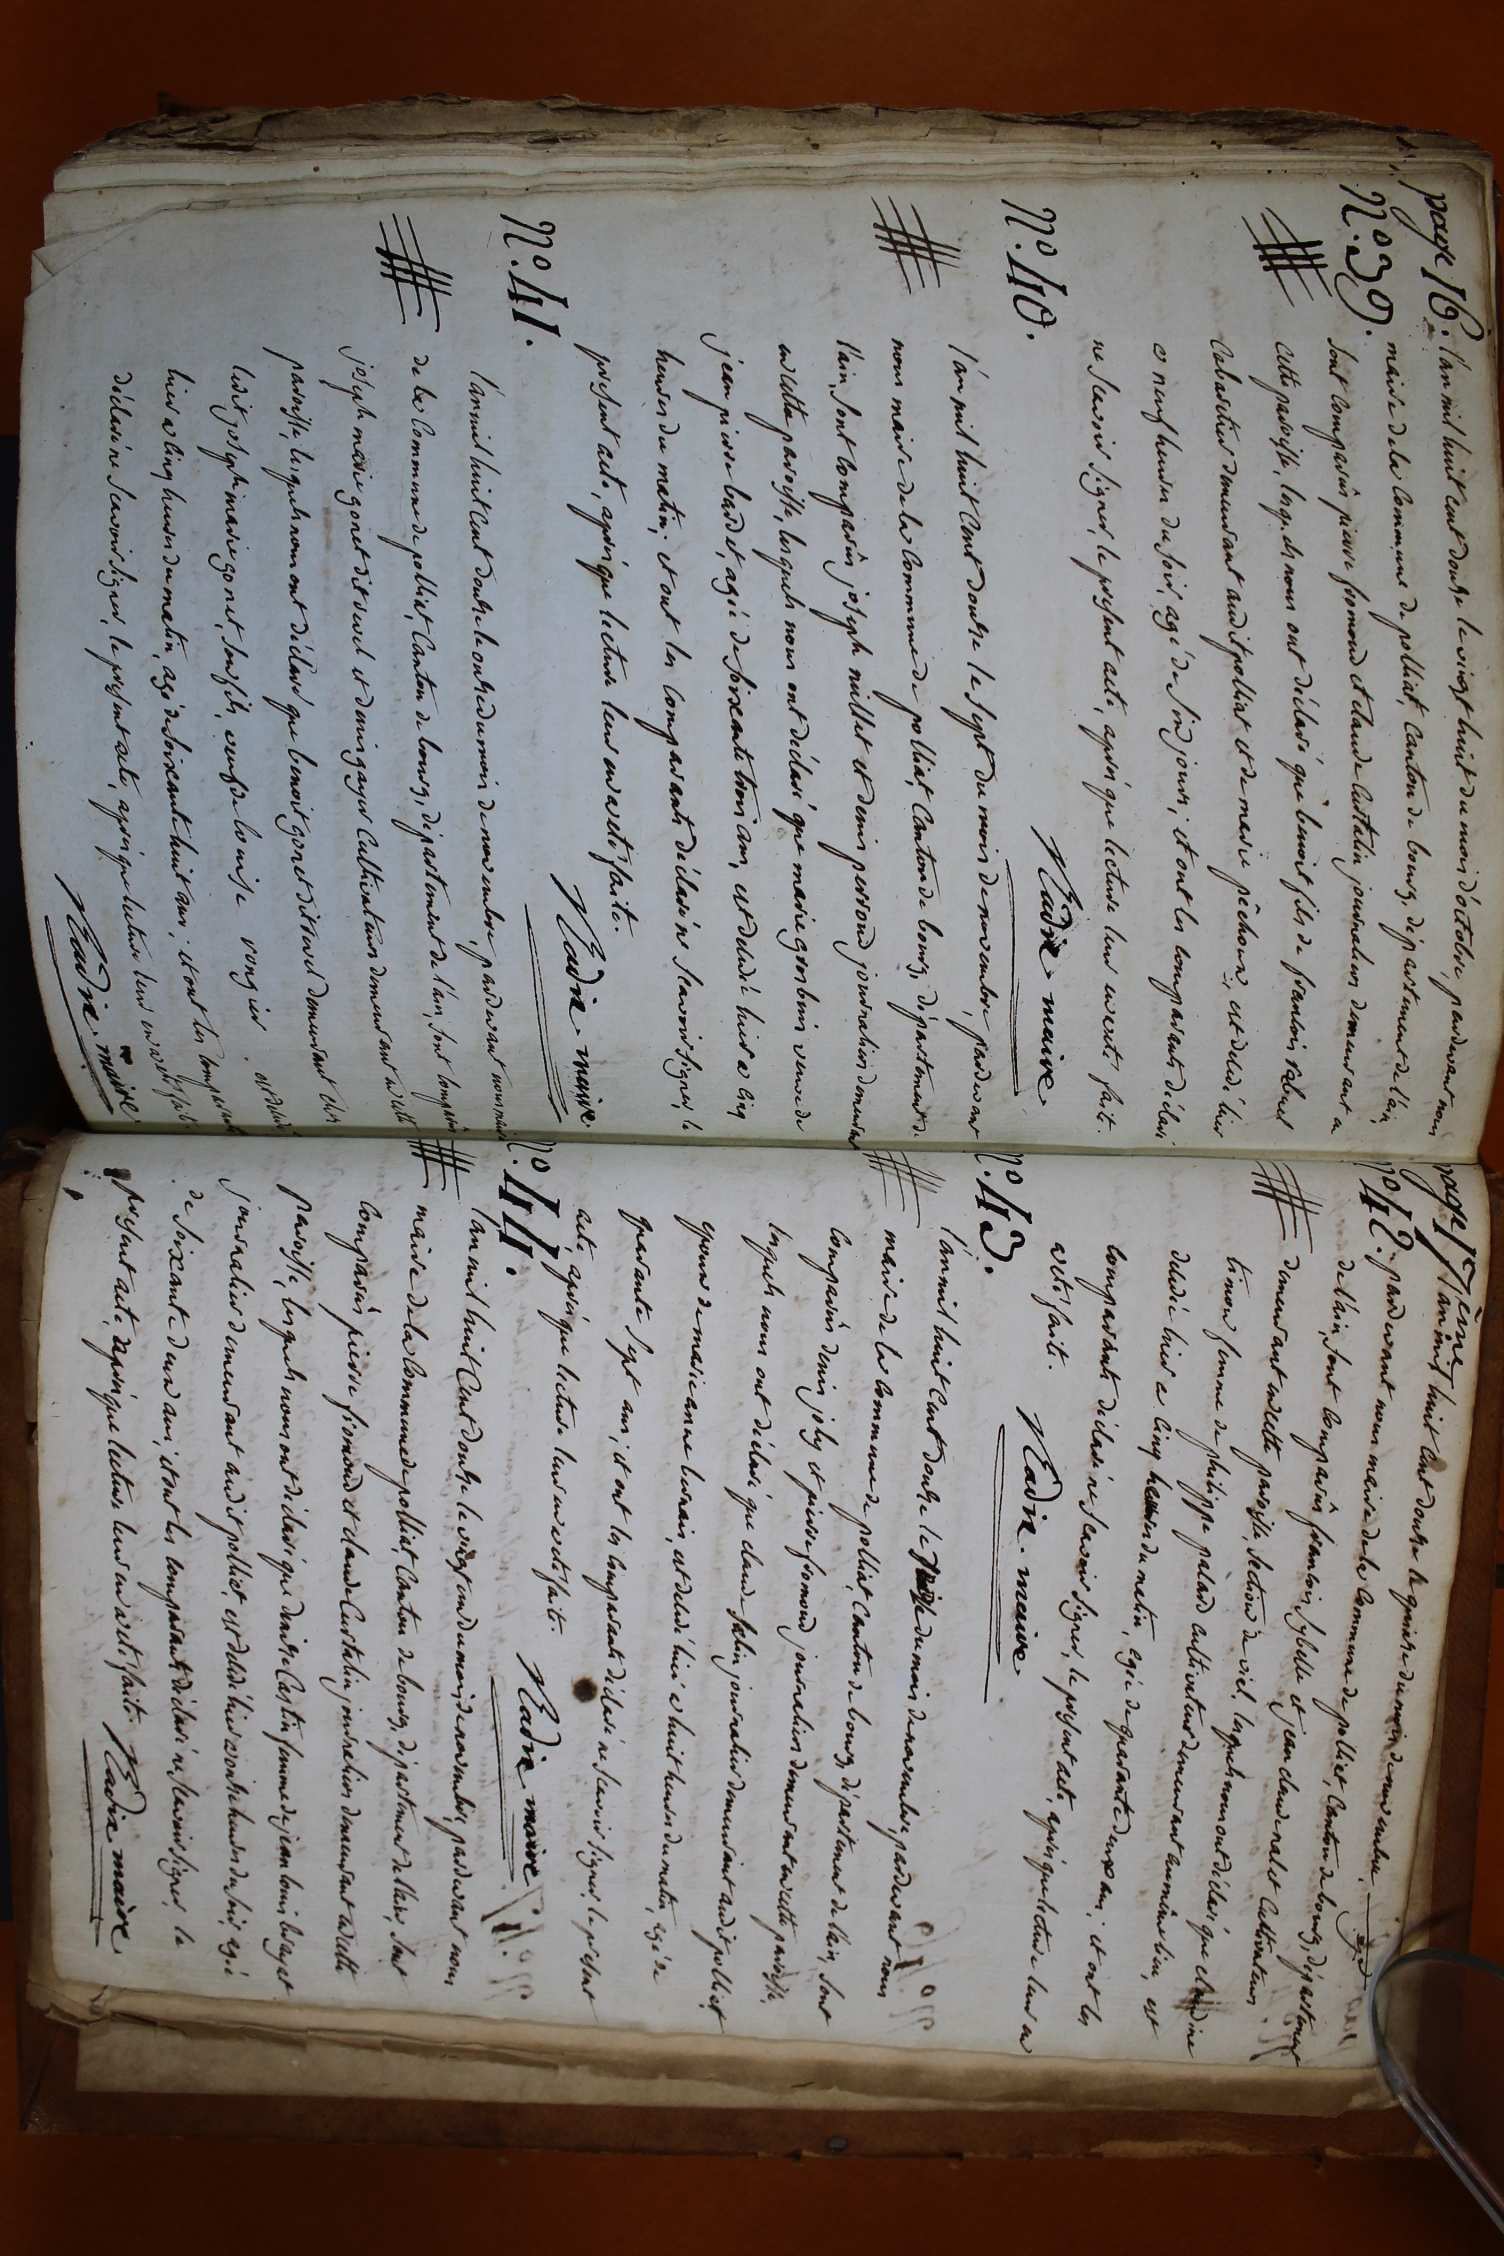 page 16.
N.° 39.
l'an mil huit cent douze le vingt huit du mois d'octobre, pardevant nous
maire de la commune de polliat, canton de bourg, département de l'ain
sont comparus pierre fromond et claude Custalin journaliers demeurant a
cette paroisse, lesquels nous ont déclaré que benoit fils de francois
Cabaretier demeurant audit polliat et de marie pêchoux, est décédé hier
a neuf heures du soir, agé de six jours; et ont les comparants déclaré
ne scavoir signer, le présent acte, après que lecture leur en eté fait.
Nadie maire
N.° 40.
l'an mil huit cent douze le sept du mois de novembre, pardevant
nous maire de la commune de polliat, canton de bourg, département de
l'ain, sont comparus joseph millet et denis perroud journaliers demeurant
en cette paroisse, lesquels nous ont déclaré que marie grosbuis veuve de
jean pierre bardet, agée de soixante trois ans, est décédé hier a cinq
heures du matin; et ont les comparants déclaré ne scavoir signer le
présent acte, après que lecture leur en a eté faite.
Nadie. maire.
N.° 41.
l'an mil huit cent douze le onze du mois de novembre, pardevant nous maire
de la Commune de polliat, Canton de bourg, département de l'ain, sont comparus
joseph marie gonet dit revel et denis gayer Cultivateurs demeurant a cette
paroisse, lesquels nous ont déclaré que benoit gonet dit revel demeurant chez
ledit joseph marie gonet, son fils, veuf de louise vongier est décédé
hier a cinq heures du matin, agé de soixante huit ans; et ont les comparants
déclaré ne scavoir signer, le présent acte, après que lecture leur en a eté fait
Nadie. maire.
page 17 ème
N.° 42.
l'an mil huit cent douze le quinze du mois de novembre,
pardevant nous maire de la Commune de polliat, Canton de bourg, département
de l'ain, sont comparus francois sybelle et jean claude nalet Cultivateurs
demeurant en cette paroisse, section de viel. lesquels nous ont déclaré que claudine
timon femme de philippe palard cultivateur demeurant au même lieu, est
décédé hier a cinq heures du matin, agée de quarante deux ans; et ont les
comparants déclaré ne scavoir signer, le présent acte, après que lecture leur en
a eté faite.
Nadie. maire
N.° 43.
l'an mil huit cent douze le du mois de novembre, pardevant nous
maire de la commune de polliat, Canton de bourg, département de l'ain, sont
comparus denis joly et pierre fromond journaliers demeurant en cette paroisse,
lesquels nous ont déclaré que claude salin journalier demeurant audit polliat
epoux de marie anne, est décédé hier a huit heures du matin, agé de
quarante sept ans; et ont les comparants déclaré ne scavoir signer, le présent
acte, après que lecture leur en a eté fait.
Nadie maire
N.° 44.
l'an mil huit cent douze le vingt un du mois de novembre, pardevant nous
maire de la Commune de polliat, Canton de bourg, département de l'ain, sont
comparus pierre fromond et claude Custalin journaliers demeurant a cette
paroisse, lesquels nous ont déclaré que denise Castin femme de jean louis
journalier demeurant audit polliat, est décédé hier a onze heures du soir, agé
de soixante deux ans; et ont les comparants déclaré ne scavoir signer, le
présent acte, après que lecture leur en a eté faite.
Nadie maire